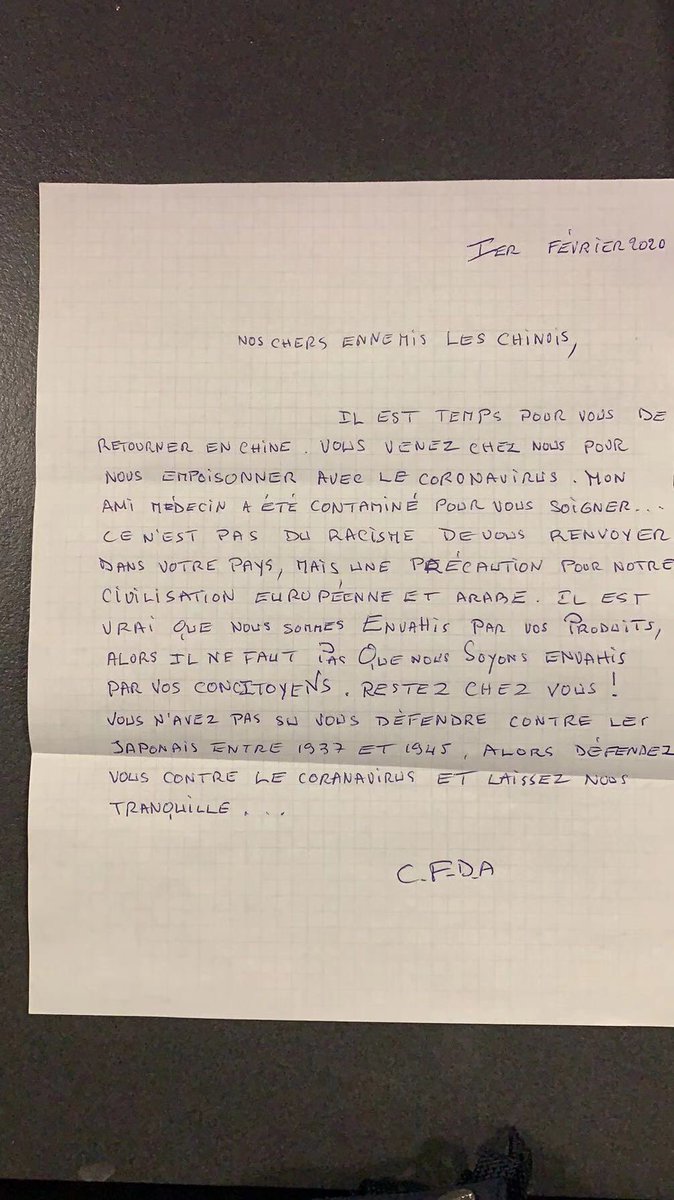 1er FÉVRIER 2020
NOS CHERS ENNEMIS LES CHINOIS,
IL EST TEMPS POUR VOUS DE
RETOURNER EN CHINE. VOUS VENEZ CHEZ NOUS POUR
NOUS EMPOISONNER AVEC LE CORONAVIRUS. MON
AMI MÉDECIN A ÉTÉ CONTAMINÉ POUR VOUS SOIGNER...
CE N'EST PAS DU RACISME DE VOUS RENVOYER
DANS VOTRE PAYS, MAIS UNE PRÉCAUTION POUR NOTRE
CIVILISATION EUROPÉENNE ET ARABE. IL EST
VRAI QUE NOUS SOMMES ENVAHIS PAR VOS PRODUITS,
ALORS IL NE FAUT PAS QUE NOUS SOYONS ENVAHIS
PAR VOS CONCITOYENS. RESTEZ CHEZ VOUS !
VOUS N'AVEZ PAS SU VOUS DÉFENDRE CONTRE LES
JAPONAIS ENTRE 1937 ET 1945, ALORS DÉFENDEZ
VOUS CONTRE LE CORANAVIRUS ET LAISSEZ NOUS
TRANQUILLE...
C.F.D.A